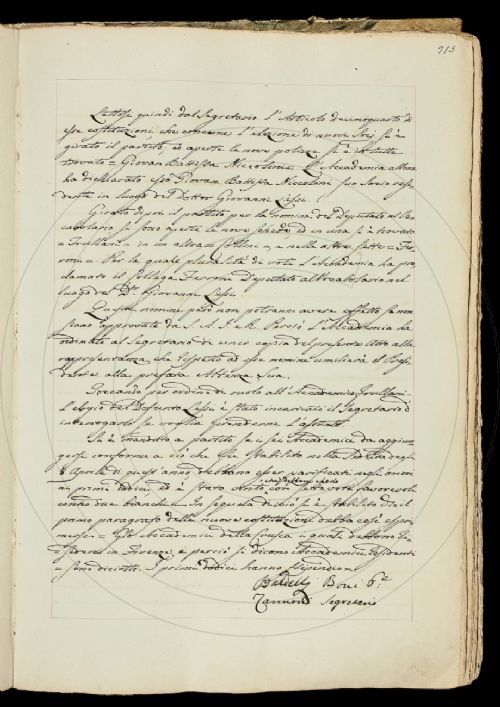 215
Lettosi quindi dal Segretario l'Articolo decimoquarto di
esse costituzioni che concerne l'elezione di nuovi Socj si è
girato il partito, ed aperte le nove polizze si è in tutte
trovato = Giovan Battista Niccolini = L'Accademia allora
ha dichiarato esso Giovan Battista Niccolini suo Socio resi-
dente in luogo del Dottor Giovanni Lessi.
Girato dipoi il partito per la nomina del Deputato al Vo-
cabolario si sono aperte le nove schede, ed in una si è trovato
= Frullani = in un altra = Collini = e nelle altre sette = Fer-
roni = Per la quale pluralità di voti l'Accademia ha pro-
clamato il Collega Ferroni Deputato al Vocabolario nel
luogo del Dre. Giovanni Lessi.
Queste nomine però non potranno avere effetto se non
siano approvate da S. A. I. e R. Perciò l'Accademia ha
ordinato al Segretario di uner copia del presente Atto alla
rappresentanza, che rispetto ad esse nomine umilierà il Presi-
dente alla prefata Altezza Sua.
Toccando per ordine di ruolo all'Accademico Frullani
l'elogio del Defunto Lessi è stato incaricato il Segretario d'
interrogarlo se voglia prendersene l'assunto.
Si è mandato a partito se i sei Accademici da aggiun-
gersi conforme a ciò che fu stabilito nella degli
8 Aprile di quest'anno debbano esser parificati negli onori
ai primi dodici, ed è stato vinto con sette voti favorevoli
contro due bianchi. In seguito di ciò si è stabilito che il
primo paragrafo delle nuove costituzioni debba così espri-
mersi = Gli Accademici della Crusca i quali debbono ri-
= siedere in Firenze, e perciò si dicono Accademici residenti
= sono diciotto. I primi dodici hanno stipendio =
Baldelli Boni
Zannoni Segretario